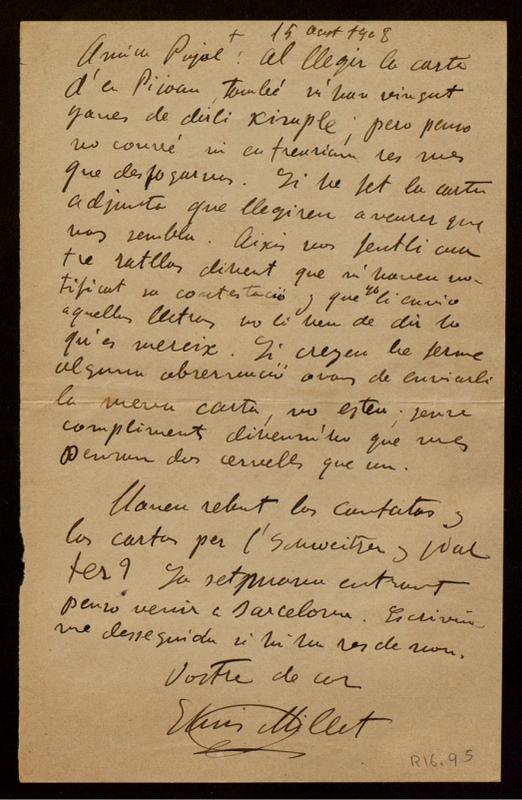 15 Agost 1908
Amich Pujol: al llegir la carta
d'en Pijoan, també m'han vingut
ganes de dirli ximple; pero penso
no convé ni en treuriam res mes
que desfogarnos. Li he fet la carta
adjunta que llegireu a veurer que
vos sembla. Aixis vos feutli
tre ratllas dihent que m'haveu no-
tificat sa contestació y que jo li envio
aquellas lletras no li heu de dir lo
qu'es mereix. Si creyeu be ferme
alguna observació avans de enviarli
la meva carta, no esteu, sense
compliments diheumho que mes
pensan dos cervells que un.
Haveu rebut las cantatas y
las cartas per l'Schweitzer y
La setmana entrant
penso venir a Barcelona. Escriviu-
me desseguida si hi ha res de nou.
Vostre de cor
Lluis Millet
R16.95